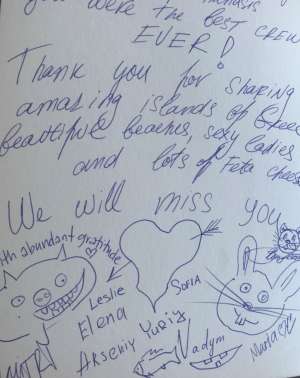 were the best crew
EVER!
Thank you for sharing
amazing islands of Greece
beautiful beaches, sexy ladies
and lots of Feta cheese
We will miss you
With abundant gratitude
Leslie
Elena
SOFIA
Arseniy Yuriy
Vadym
Marta